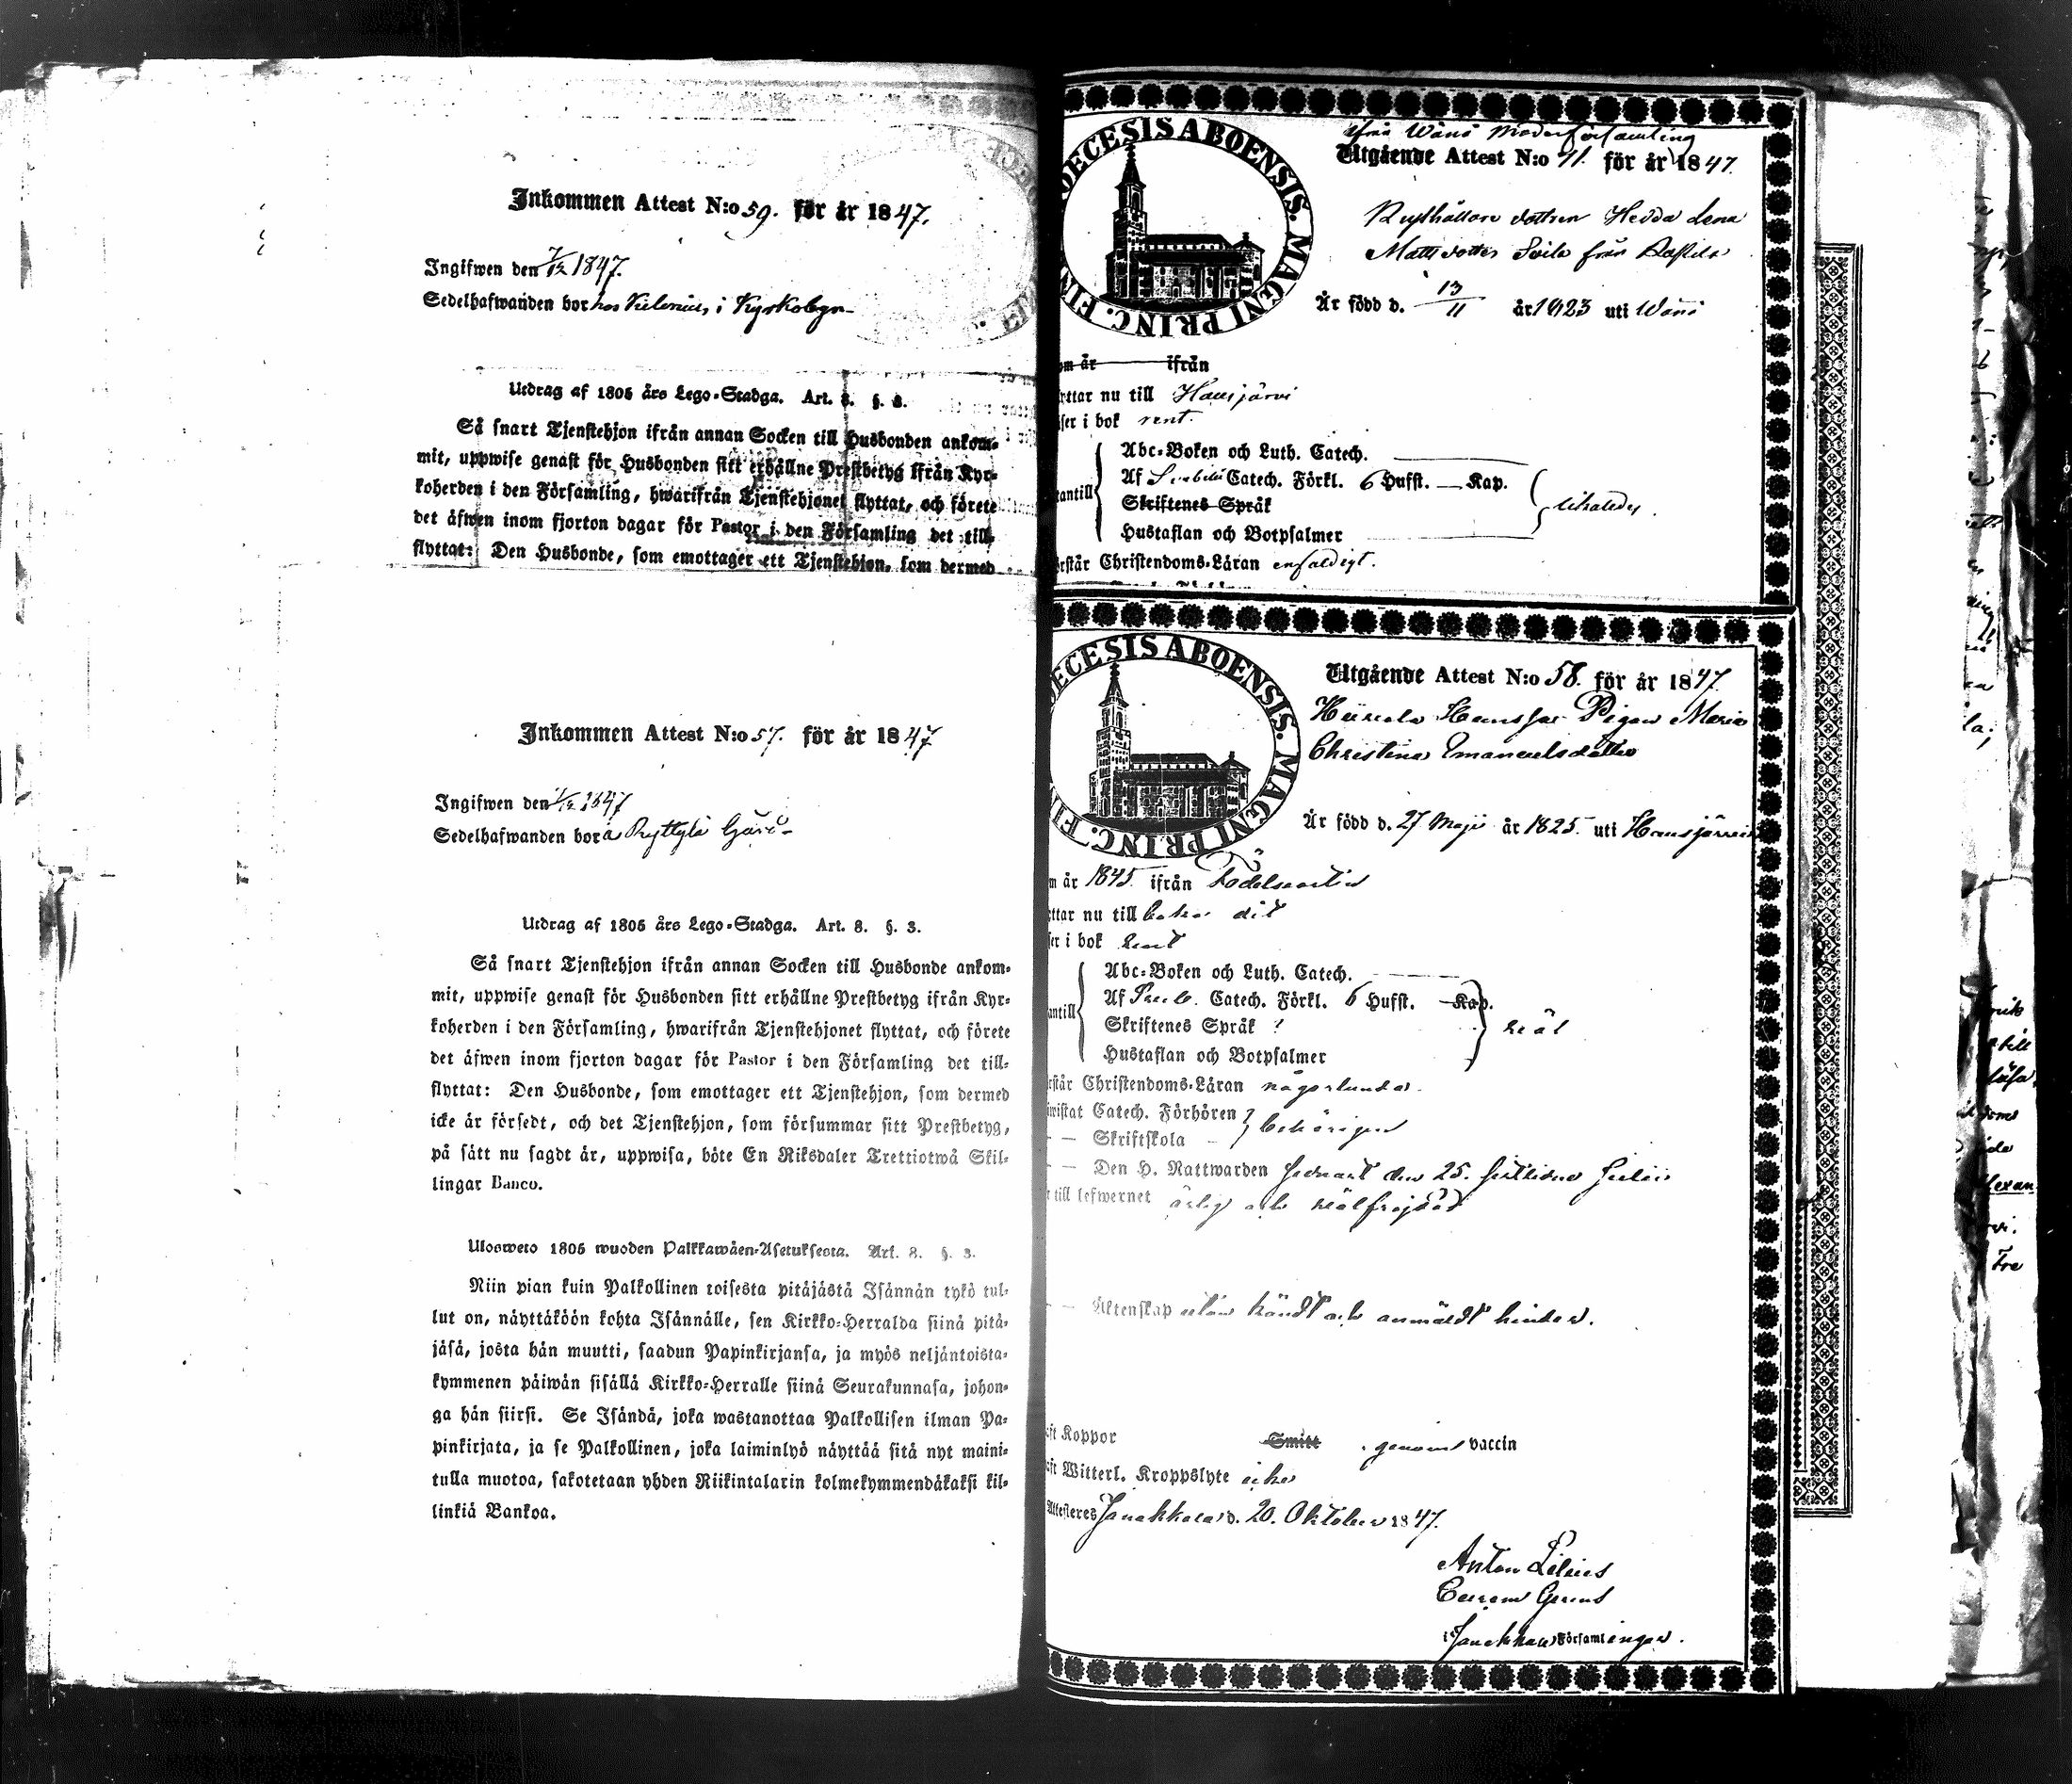 Inkommen Attest N:o 59. för år 1847.
Ingifwen den 7/12 1847.
Sedelhafwanden bor hos i Kyrkobyn
Utdrag af 1805 års Lego-Stadga. Art. 8. §. 3.
Så snart Tjenstehjon ifrån annan Socken till Husbonden ankom-
mit, uppwise genast för Husbonden sitt erhållne Prestbetyg ifrån Kyr-
koherden i den Församling, hwarifrån Tjenstehjonet flyttat, och förete
det äfwen inom fjorton dagar för Pastor i den Församling det till-
flyttat: Den Husbonde, som emottager ett Tjenstehjon, som dermed
Inkommen Attest N:o 57. för år 1847
Ingifwen den 1/12 1847
Sedelhafwanden bor å Ryttylä Gård
Utdrag af 1805 års Lego-Stadga. Art. 8. §. 3.
Så snart Tjenstehjon ifrån annan Socken till Husbonde ankom-
mit, uppwise genast för Husbonden sitt erhållne Prestbetyg ifrån Kyr-
koherden i den Församling, hwarifrån Tjenstehjonet flyttat, och förete
det äfwen inom fjorton dagar för Pastor i den Församling det till-
flyttat: Den Husbonde, som emottager ett Tjenstehjon, som dermed
icke är försedt, och det Tjenstehjon, som försummar sitt Prestbetyg,
på sätt nu sagdt är, uppwisa, böte En Riksdaler Trettiotwå Skil-
lingar Banco.
Ulosweto 1805 wuoden Palkkawäen-Asetuksesta. Art. 8. §. 3.
Niin pian kuin Palkollinen toisesta pitäjästä Isännän tykö tul-
lut on, näyttäköön kohta Isännälle, sen Kirkko-Herralda siinä pitä-
jäsä, josta hän muutti, saadun Papinkirjansa, ja myös neljäntoista-
kymmenen päiwän sisällä Kirkko-Herralle siinä Seurakunnasa, johon-
ga hän siirsi. Se Isändä, joka wastanottaa Palkollisen ilman Pa-
pinkirjata, ja se Palkollinen, joka laiminlyö näyttää sitä nyt maini-
tulla muotoa, sakotetaan yhden Riikintalarin kolmekymmendäkaksi kil-
linkiä Bankoa.
DIOECESIS ABOENSIS. MAGNI PRINC. FIN
ifrån Wånå Moderförsamling
Utgående Attest N:o 41. för år 1847.
Rusthållare dottren Hedda Lena
Mattsdotter från
Är född d. 13/11 år 1823 uti Wånå
om år ifrån
ttar nu till Hausjärvi
ser i bok rent.
Abc-Boken och Luth. Catech.
Af Catech. Förkl. 6 Hufst. Kap.
antill
Skriftenes Språk
Hustaflan och Botpsalmer
rstår Christendoms-Läran enfaldigt.
DIOECESIS ABOENSIS. MAGNI PRINC. FI
Utgående Attest N:o 58. för år 1847.
Pigan Maria
Christina Emanuelsdotter
Är född d. 27 Maji år 1825. uti Hausjärvi
m år 1845. ifrån Födelseorten
ttar nu till baka dit
er i bok rent
Abc-Boken och Luth. Catech.
Af Catech. Förkl. 6 Hufst. Kap.
antill
Skriftenes Språk
Hustaflan och Botpsalmer
wäl
rstår Christendoms-Läran någorlunda.
wistat Catech. Förhören
— — Skriftskola behörigen
— — Den H. Nattwarden sednast den 25. sistledne Julii
till lefwernet ärlig och wälfrejdad
— — Äktenskap utan kändt och anmäldt hinder.
ft Koppor Smitt genom vaccin
ft Witterl. Kroppslyte icke
Attesteres Janakkala d. 20. Oktober 1847.
Anton Lilius
i Janakkala Församlingar.